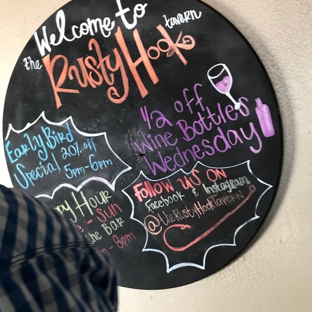 Welcome to
the Rusty Hook tavern
1/2 off
Wine Bottles
Wednesday
Early Bird
Special 20% off
5pm-6pm
Hour
- Sun
the Bar
- 8pm
Follow us on
Facebook & Instagram